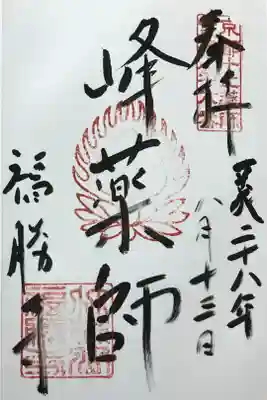 奉拝
平成二十八年
八月十三日
峰薬師
福勝寺